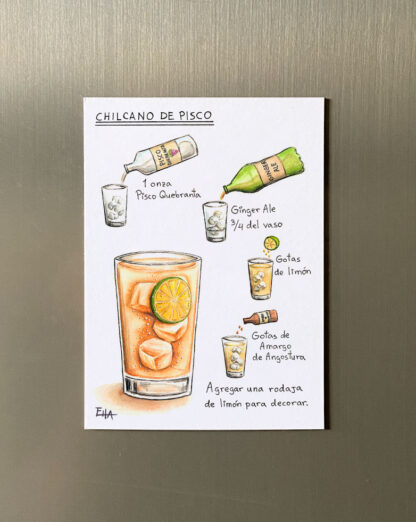 CHILCANO DE PISCO
PISCO
1 onza
Pisco Quebranta
GINGER
ALE
Ginger Ale
3/4 del vaso
Gotas
de limón
Gotas de
Amargo
de Angostura
Agregar una rodaja
de limón para decorar.